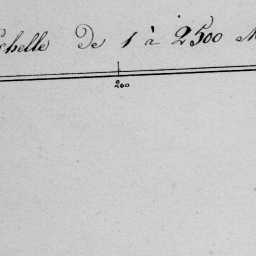 chelle De 1 à 2500 M
200